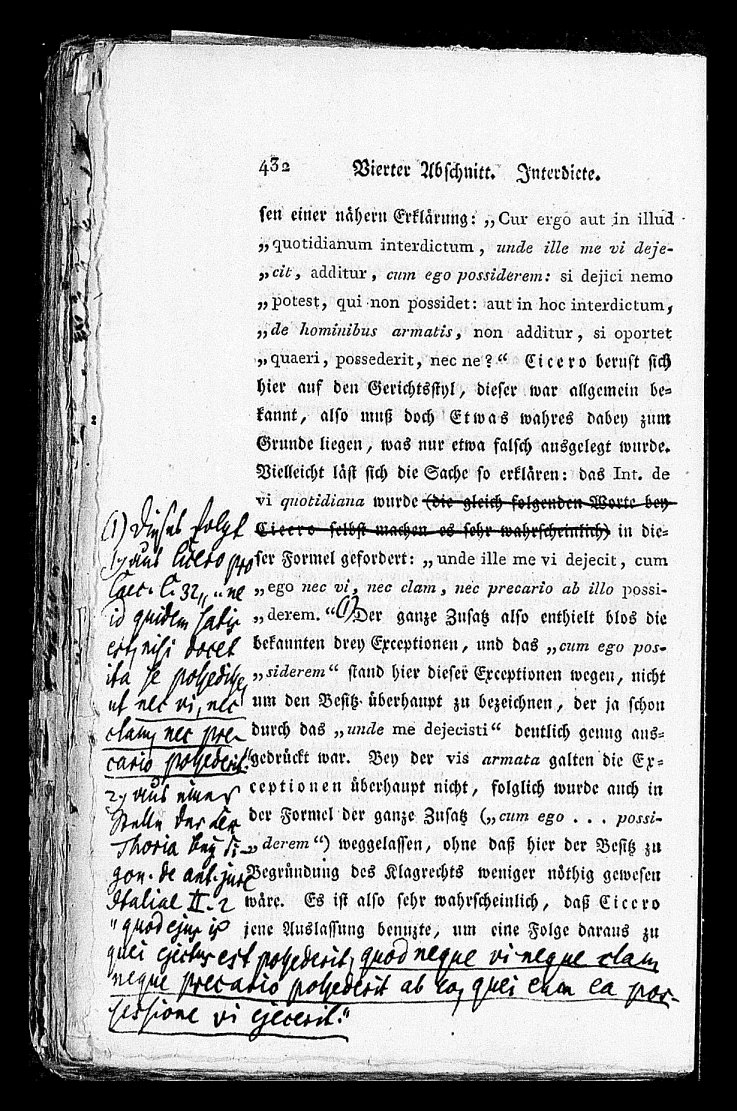 432 Vierter Abschnitt. Interdicte.
sen einer nähern Erklärung: „Cur ergo aut in illud
„quotidianum interdictum, unde ille me vi deje-
„cit, additur, cum ego possiderem: si dejici nemo
„potest, qui non possidet: aut in hoc interdictum,
„de hominibus armatis, non additur, si oportet
„quaeri, possederit, nec ne?“ Cicero beruft sich
hier auf den Gerichtsstyl, dieser war allgemein be-
kannt, also muß doch Etwas wahres dabey zum
Grunde liegen, was nur etwa falsch ausgelegt wurde.
Vielleicht läst sich die Sache so erklären: das Int. de
vi quotidiana wurde (die gleich folgenden Worte bey
Cicero selbst machen es sehr wahrscheinlich) in die-
ser Formel gefordert: „unde ille me vi dejecit, cum
„ego nec vi, nec clam, nec precario ab illo possi-
„derem.“ 1) Der ganze Zusatz also enthielt blos die
bekannten drey Exceptionen, und das „cum ego pos-
„siderem“ stand hier dieser Exceptionen wegen, nicht
um den Besitz überhaupt zu bezeichnen, der ja schon
durch das „unde me dejecisti“ deutlich genug aus-
gedrückt war. Bey der vis armata galten die Ex-
ceptionen überhaupt nicht, folglich wurde auch in
der Formel der ganze Zusatz („cum ego . . . possi-
„derem“) weggelassen, ohne daß hier der Besitz zu
Begründung des Klagrechts weniger nöthig gewesen
wäre. Es ist also sehr wahrscheinlich, daß Cicero
jene Auslassung benutzte, um eine Folge daraus zu
1) Dieses folgt
1, aus Cicero pro
Caec. C. 32 „ne
id quidem satis
est, nisi docet
ita se possedisse,
ut nec vi, nec
clam, nec pre-
cario possederit.“
2, aus einer
Stelle der Lex
Thoria bey Si-
gon. de ant. jure
Italiae II. 2
„quod ejus is
quei ejectus est possederit, quod neque vi neque clam
neque precario possederit ab eo, quei eum ea pos-
sessione vi ejecerit.“